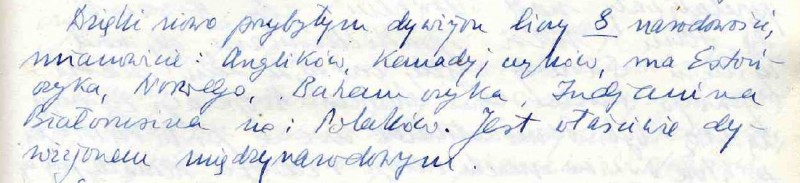 Dzięki nowo przybyłym dywizjon liczy 8 narodowości,
mianowicie: Anglików, Kanadyjczyków, ma Estoń-
czyka, Norwega, Bahamczyka, Indjanina
Białorusina no i Polaków. Jest właściwie dy-
wizjonem międzynarodowym.